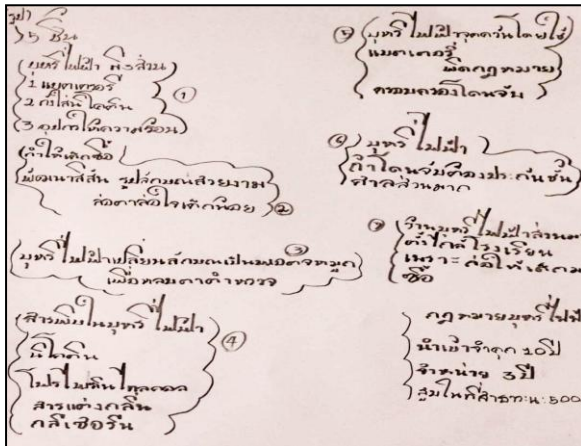 5 ชิ้น
บุหรี่ไฟฟ้า มี 3 ส่วน
1 แบตเตอรี่
3 อุปกรให้ความร้อน
①
ทำให้เด็กซื้อ
พัฒนาสีสัน รูปลักษณ์สวยงาม
ล่อตาล่อใจเด็กน้อย
②
③
บุหรี่ไฟฟ้าเปลี่ยนลักษณเป็นพอตจมูก
เพื่อหลบตาตำหรวจ
④
สารพิษในบุหรี่ไฟฟ้า
นิโคติน
สารแต่งกลิ่น
กลีเซอรีน
⑤
บุหรี่ไฟฟ้าจุดควันโดยใช้
แบตเตอรี่
ผิดกฎหมาย
ครอบครองโดนจับ
⑥
บุหรี่ไฟฟ้า
ถ้าโดนจับต้องประกันชั้น
ศาลส่วนมาก
⑦
ร้านบุหรี่ไฟฟ้าส่วนม
ตั้งใกล้โรงเรียน
เพราะล่อให้เด็กม
ซื้อ
กฎหมายบุหรี่ไฟฟ้
นำเข้าจำคุก 10 ปี
จำหน่าย 3 ปี
สูบในที่สาธาณะ 500